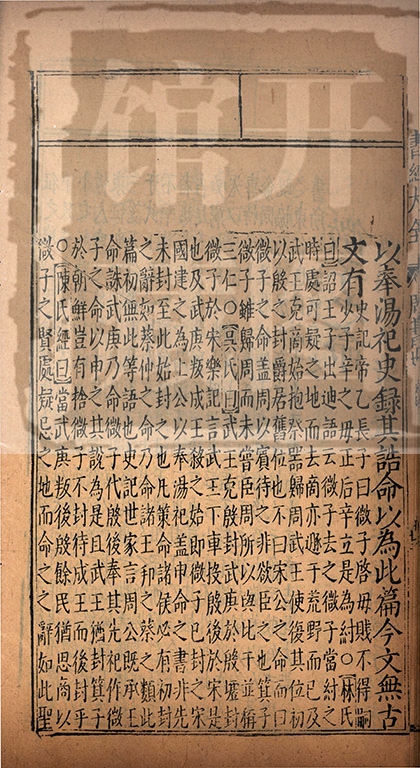 以奉湯祀史錄其誥命以為此篇今文無古
文有
史記帝乙長子曰微子啓母賤不得嗣
少子辛之母正后辛立是為紂○林氏
曰詔王子出迪語云微子去之微子當紂之
時處可疑之地而去商亦遯于荒野而已及
武王克商始抱祭器歸周武王使復其位初
以殷之封爵居舊位也不曰宋公之命而曰
微子之命蓋周以賓待之非欲臣之也箕子
微子雖歸周而未嘗臣周所以與比干並稱
三仁○吳氏曰武王克殷封武庚於殷墟封
微子於宋樂記言武王下車投殷後於宋是
也及武庚叛成王殺之始即微子已封之宋
國建之為上公以奉湯祀蓋申命之書非先
未封至此始封之也凡策命諸侯必有初封
之辭如蔡仲之命乃命諸王邦之蔡之類此
篇初無此等語也史記世家言周公既承王
命誅武庚乃命微子代殷後奉其先祀作微
子之命以申之其說為是且武王猶封箕子
於朝鮮豈有捨微子不封待成王而後封乎
○陳氏經曰當武庚叛後殷餘民猶思商以
微子之賢處疑忌之地而命之之辭如此聖